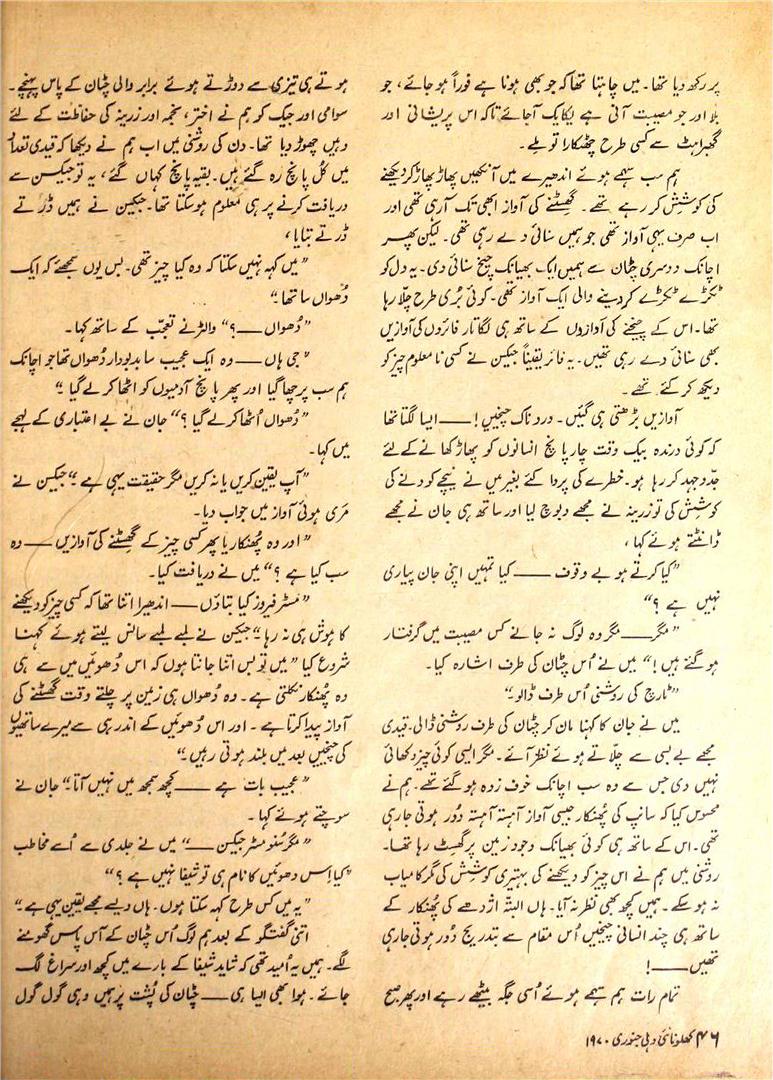 پر رکھ دیا تھا۔ میں چاہتا تھا کہ جو بھی ہونا ہے فوراً ہو جائے، جو
بلا اور جو مصیبت آنی ہے یکایک آجائے تاکہ اس پریشانی اور
گھبراہٹ سے کسی طرح چھٹکارا تو ملے۔
ہم سب سہمے ہوئے اندھیرے میں آنکھیں پھاڑ پھاڑ کر دیکھنے
کی کوشش کر رہے تھے۔ گھسٹنے کی آواز ابھی تک آرہی تھی اور
اب صرف یہی آواز تھی جو ہمیں سنائی دے رہی تھی۔ لیکن پھر
اچانک دوسری چٹان سے ہمیں ایک بھیانک چیخ سنائی دی۔ یہ دل کو
ٹکڑے ٹکڑے کر دینے والی ایک آواز تھی۔ کوئی بُری طرح چلّا رہا
تھا۔ اس کے چیخنے کی آوازوں کے ساتھ ہی لگاتار فائروں کی آوازیں
بھی سنائی دے رہی تھیں۔ یہ فائر یقیناً جیکسن نے کسی نامعلوم چیز کو
دیکھ کر کئے تھے۔
آوازیں بڑھتی ہی گئیں۔ درد ناک چیخیں! —— ایسا لگتا تھا
کہ کوئی درندہ بیک وقت چار پانچ انسانوں کو پھاڑ کھانے کے لئے
جدّوجہد کر رہا ہو۔ خطرے کی پروا کئے بغیر میں نے نیچے کودنے کی
کوشش کی تو زرینہ نے مجھے دبوچ لیا اور ساتھ ہی جان نے مجھے
ڈانٹتے ہوئے کہا،
”کیا کرتے ہو بے وقوف —— کیا تمہیں اپنی جان پیاری
نہیں ہے؟“
”مگر —— مگر وہ لوگ نہ جانے کس مصیبت میں گرفتار
ہو گئے ہیں!“ میں نے اُس چٹان کی طرف اشارہ کیا۔
”ٹارچ کی روشنی اُس طرف ڈالو۔“
میں نے جان کا کہنا مان کر چٹان کی طرف روشنی ڈالی۔ قیدی
مجھے بے بسی سے چلّاتے ہوئے نظر آئے۔ مگر ایسی کوئی چیز دکھائی
نہیں دی جس سے وہ سب اچانک خوف زدہ ہو گئے تھے۔ ہم نے
محسوس کیا کہ سانپ کی پُھنکار جیسی آواز آہستہ آہستہ دُور ہوتی جارہی
تھی۔ اس کے ساتھ ہی کوئی بھیانک وجود زمین پر گھسٹ رہا تھا۔
روشنی میں ہم نے اس چیز کو دیکھنے کی بہتیری کوشش کی مگر کامیاب
نہ ہو سکے۔ ہمیں کچھ بھی نظر نہ آیا۔ ہاں البتّہ اژدھے کی پُھنکار کے
ساتھ ہی چند انسانی چیخیں اُس مقام سے بتدریج دُور ہوتی جارہی
تھیں —— !
تمام رات ہم سہمے ہوئے اُسی جگہ بیٹھے رہے اور پھر صبح
ہوتے ہی تیزی سے دوڑتے ہوئے برابر والی چٹان کے پاس پہنچے۔
سوامی اور جیک کو ہم نے اختر، نجمہ اور زرینہ کی حفاظت کے لئے
وہیں چھوڑ دیا تھا۔ دن کی روشنی میں اب ہم نے دیکھا کہ قیدی تعداد
میں کُل پانچ رہ گئے ہیں۔ بقیہ پانچ کہاں گئے، یہ تو جیکسن سے
دریافت کرنے پر ہی معلوم ہو سکتا تھا۔ جیکسن نے ہمیں ڈرتے
ڈرتے بتایا،
”میں کہہ نہیں سکتا کہ وہ کیا چیز تھی۔ بس یوں سمجھئے کہ ایک
دُھواں سا تھا۔“
”دُھواں —— ؟“ والٹر نے تعجّب کے ساتھ کہا۔
”جی ہاں —— وہ ایک عجیب سا بدبودار دُھواں تھا جو اچانک
ہم سب پر چھا گیا اور پھر پانچ آدمیوں کو اٹھا کر لے گیا۔“
”دُھواں اُٹھا کر لے گیا؟“ جان نے بے اعتباری کے لہجے
میں کہا۔
”آپ یقین کریں یا نہ کریں مگر حقیقت یہی ہے۔“ جیکسن نے
مری ہوئی آواز میں جواب دیا۔
”اور وہ پُھنکار یا پھر کسی چیز کے گھسٹنے کی آوازیں —— وہ
سب کیا ہے؟“ میں نے دریافت کیا۔
”مسٹر فیروز کیا بتاؤں —— اندھیرا اتنا تھا کہ کسی چیز کو دیکھنے
کا ہوش ہی نہ رہا۔“ جیکسن نے لمبے لمبے سانس لیتے ہوئے کہنا
شروع کیا ”میں تو بس اتنا جانتا ہوں کہ اس دُھوئیں میں سے ہی
وہ پُھنکار نکلتی ہے۔ وہ دُھواں ہی زمین پر چلتے وقت گھسٹنے کی
آواز پیدا کرتا ہے۔ اور اس دُھوئیں کے اندر ہی سے میرے ساتھیوں
کی چیخیں بعد میں بلند ہوتی رہیں۔“
”عجیب بات ہے —— کچھ سمجھ میں نہیں آتا۔“ جان نے
سوچتے ہوئے کہا۔
”مگر سُنو مسٹر جیکسن ——“ میں نے جلدی سے اُسے مخاطب
”کیا اِس دھوئیں کا نام ہی تو شیفا نہیں ہے؟“
”یہ میں کس طرح کہہ سکتا ہوں۔ ہاں ویسے مجھے یقین یہی ہے۔“
اتنی گفتگو کے بعد ہم لوگ اُس چٹان کے آس پاس گھومنے
لگے۔ ہمیں یہ اُمید تھی کہ شاید شیفا کے بارے میں کچھ اور سراغ لگ
جائے۔ ہوا بھی ایسا ہی —— چٹان کی پُشت پر ہمیں وہی گول گول
۴۶ کھلونا نئی دہلی جنوری ۱۹۷۰